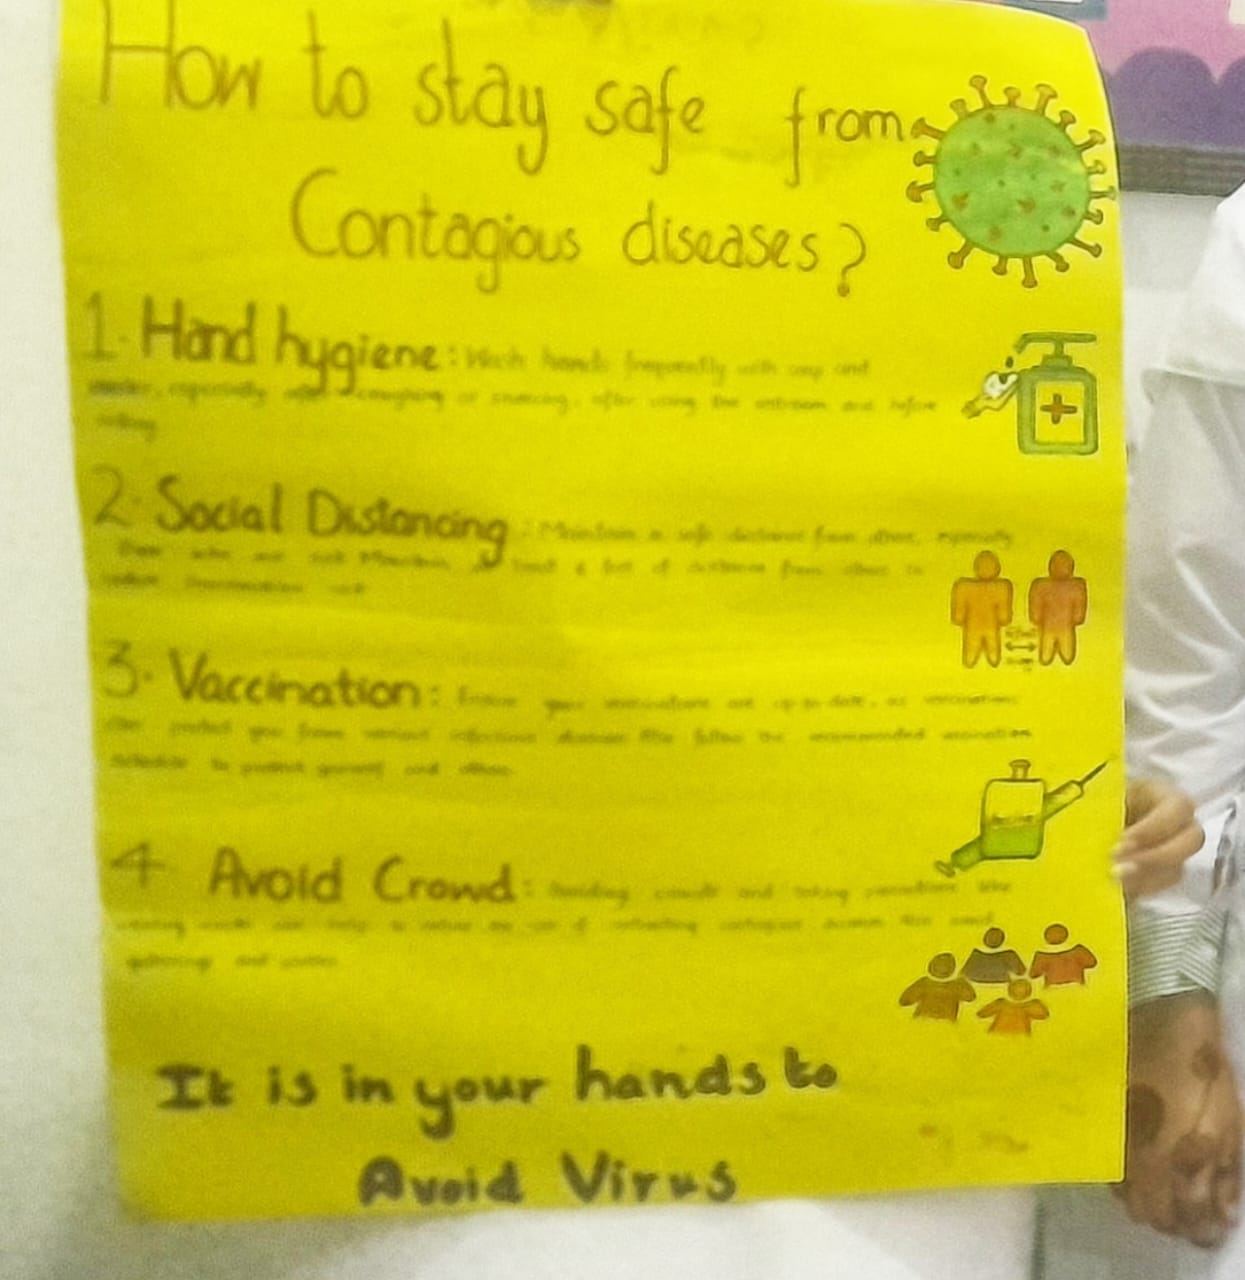 How to stay safe from
Contagious diseases?
1. Hand hygiene: Wash hands frequently with soap and
especially after coughing or sneezing, after using the restroom and before
eating
2. Social Distancing: Maintain a safe distance from others, especially
those who are sick Maintain at least 6 feet of distance from others to
reduce transmission risk
3. Vaccination: Ensure your vaccinations are up-to-date, as vaccinations
can protect you from various infectious diseases Also follow the recommended vaccination
schedule to protect yourself and others
4 Avoid Crowd: Avoiding crowds and taking precautions like
wearing masks can help to reduce the risk of contracting contagious diseases
gatherings and
It is in your hands to
Avoid Virus